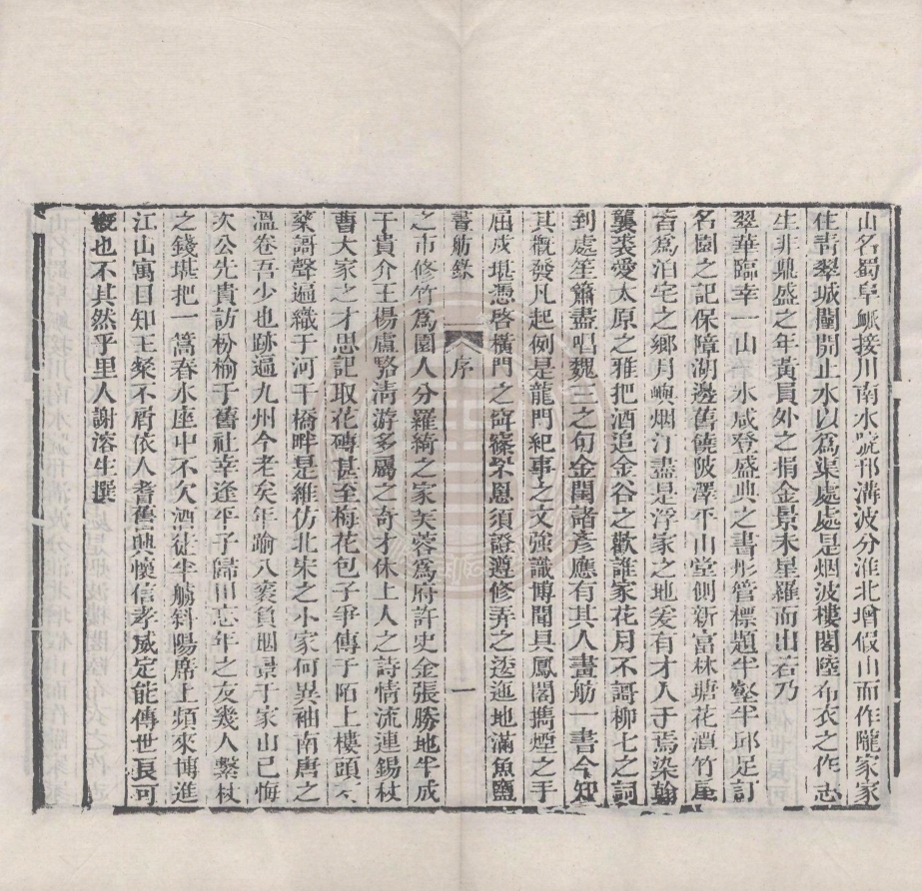 山名蜀阜衇接川南水號邗溝波分淮北增假山而作隴家家
住青翠城闉開止水以爲渠處處是烟波樓閣陸布衣之作志
生非鼎盛之年黃員外之捐金景未星羅而出若乃
翠華臨幸一山一水咸登盛典之書彤管標題半壑半邱足訂
名園之記保障湖邊舊饒陂澤平山堂側新富林塘花潭竹嶼
皆爲泊宅之鄉月嶼烟汀盡是浮家之地爰有才人于焉染翰
龔裘愛太原之雅把酒追金谷之歡誰家花月不謌柳七之詞
到處笙簫盡唱魏三之句金閨諸彥應有其人畫舫一書今知
其槪發凡起例是龍門紀事之文強識博聞具鳳閣擕煙之手
屈戍堪憑啓橫門之窈窱罘罳須證遵修弄之逶迤地滿魚鹽
畫舫錄 序 一
之市修竹爲園人分羅綺之家芙蓉爲府許史金張勝地半成
于貴介王楊盧駱淸游多屬之奇才休上人之詩情流連錫杖
曹大家之才思記取花磚甚至梅花包子爭傳于陌上樓頭
菜謌聲遍織于河干橋畔是雖仿北宋之小家何異袖南唐之
溫卷吾少也跡遍九州今老矣年踰八袠負暄景于家山已悔
次公先貴訪枌榆于舊社幸逢平子歸田忘年之友幾人繫杖
之錢堪把一篙春水座中不欠酒徒半舫斜陽席上頻來博進
江山寓目知王粲不屑依人耆舊興懷信孝威定能傳世長可
槪也不其然乎里人謝溶生撰